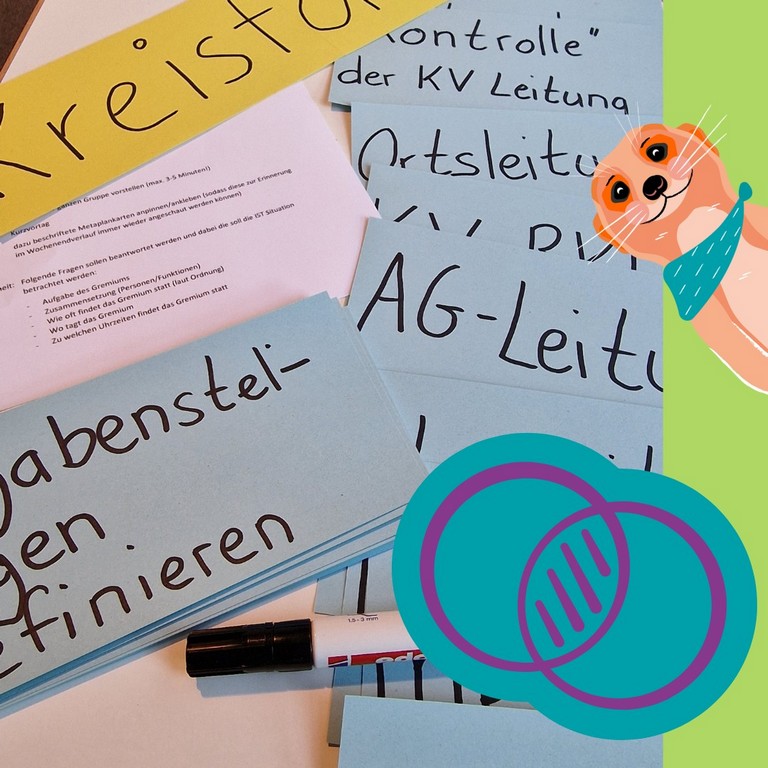 Kreisto
Kontrolle"
der KV Leitung
Ortsleitu
KV
AG-Leitu
ganzen Gruppe vorstellen (max. 3-5 Minuten!)
Kurzvortag
dazu beschriftete Metaplankarten anpinnen/ankleben (sodass diese zur Erinnerung
im Wochenendverlauf immer wieder angeschaut werden können)
eit: Folgende Fragen sollen beantwortet werden und dabei die soll die IST Situation
betrachtet werden:
- Aufgabe des Gremiums
- Zusammensetzung (Personen/Funktionen)
- Wie oft findet das Gremium statt (laut Ordnung)
- Wo tagt das Gremium
- Zu welchen Uhrzeiten findet das Gremium statt
gabenstel-
gen
efinieren
1,5 - 3 mm